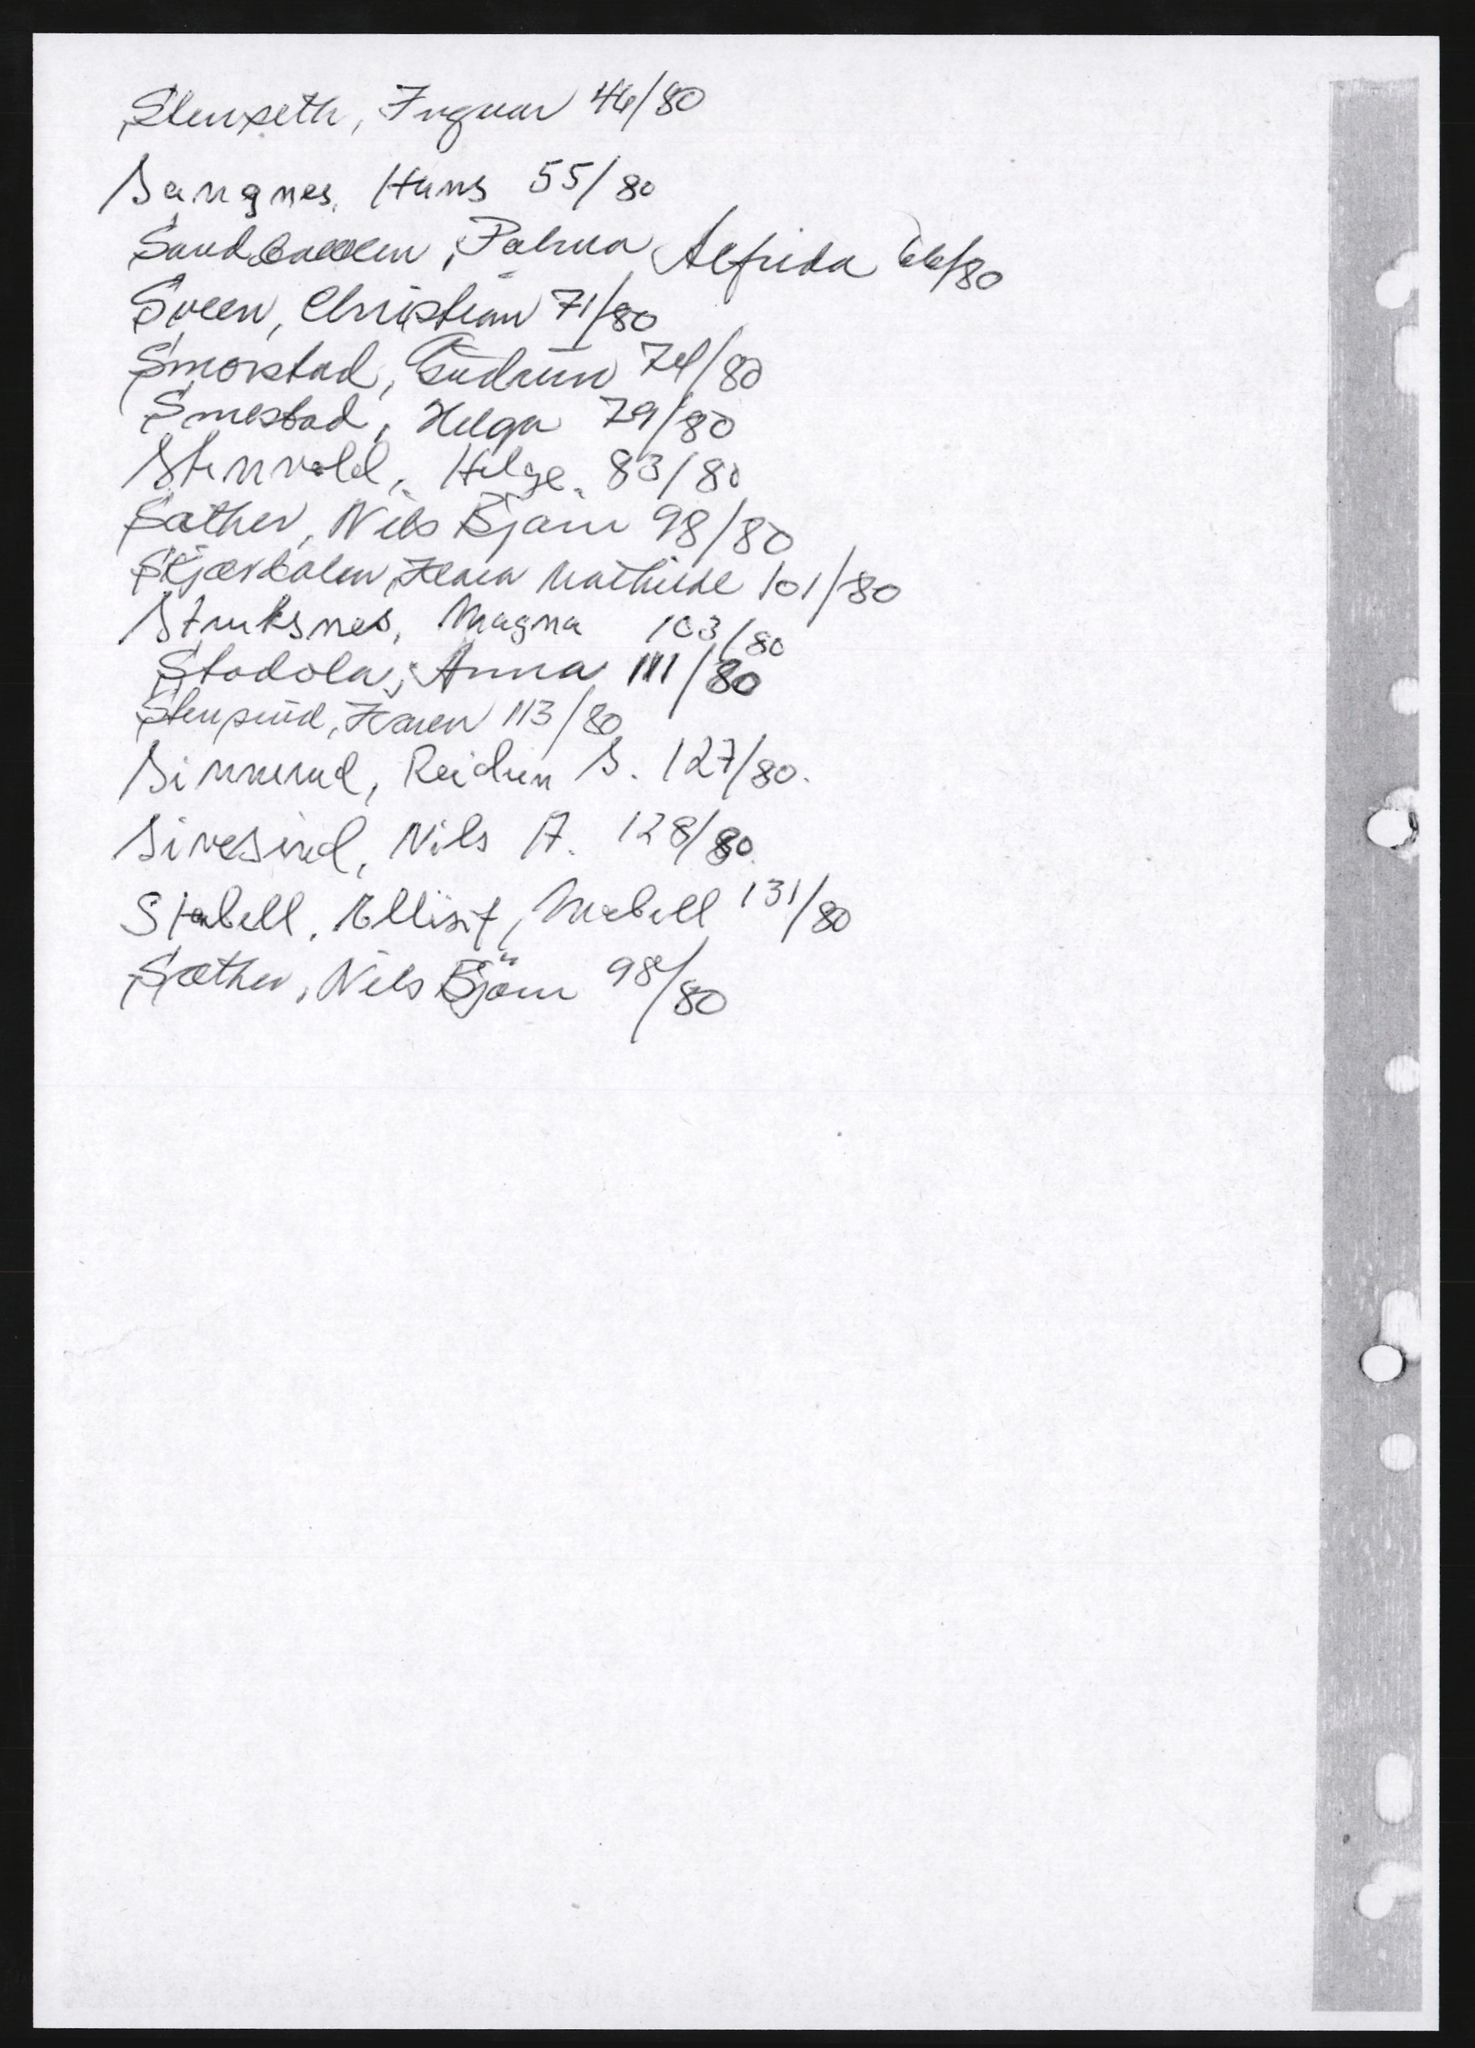 Stenseth, Ingvar 46/80
Sangnes, Hans 55/80
Sandbakken, Palma Alfrida 66/80
Sveen, Christian 71/80
Smorstad, Gudrun 74/80
Smestad, Helga 79/80
Stenvold, Helge. 83/80
Sæther, Nils Bjørn 98/80
Skjærbalen, Klara Mathilde 101/80
Struksnes, Magna 103/80
Stadola, Anna 111/80
Stensrud, Karen 113/80
Sinnerud, Reidun S. 127/80.
Sivesind, Nils A. 128/80.
Stabell, Ellisif, Mabell 131/80
Sæther, Nils Björn 98/80